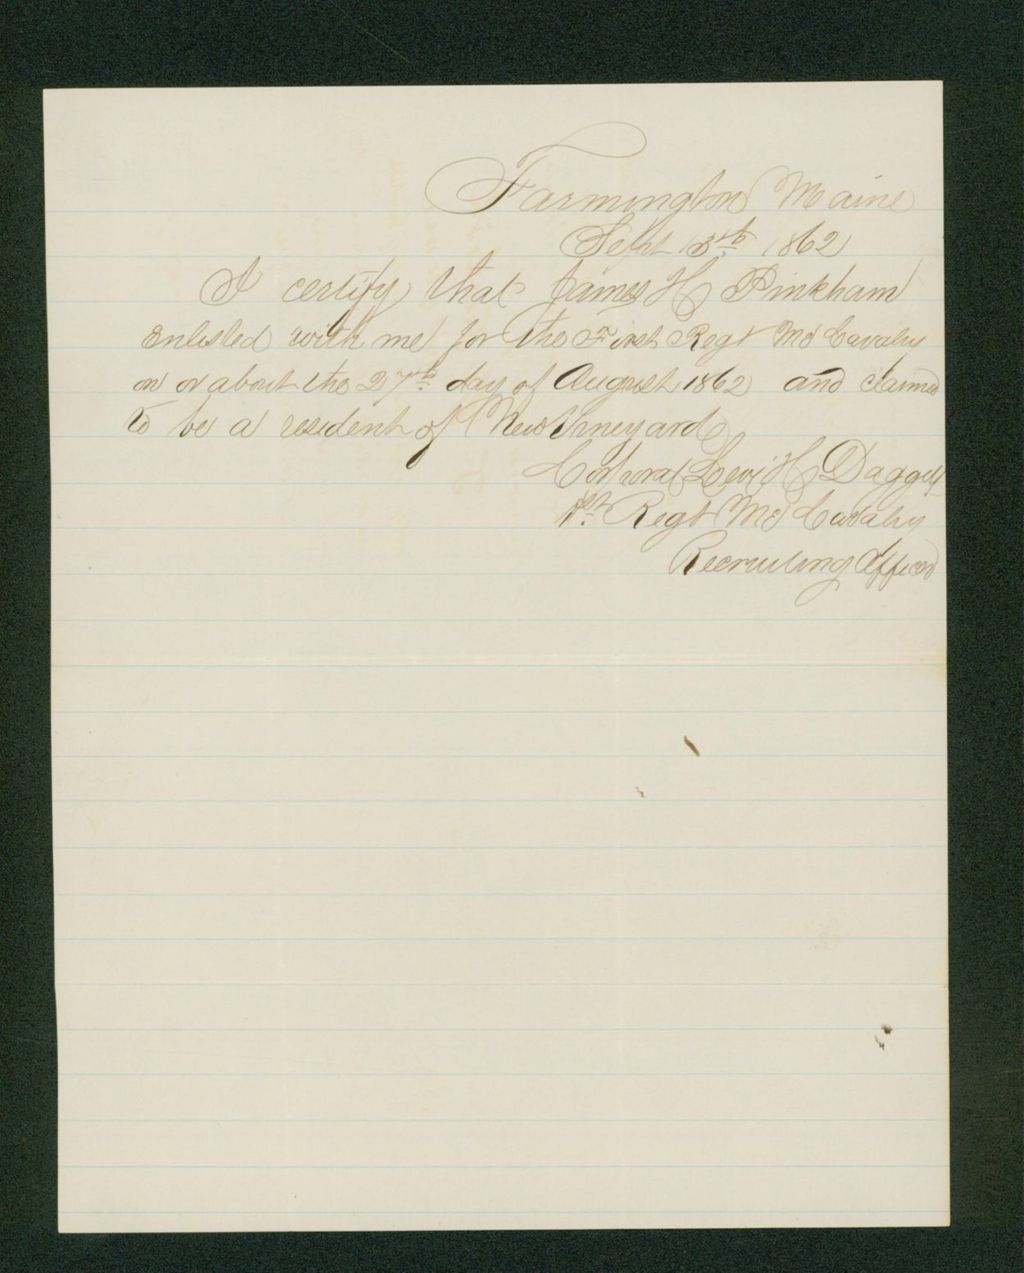 Farmington Maine
Sept 15th 1862
I certify that James H Pinkham
enlisted with me for the First Regt Me Cavalry
on or about the 27th day of August 1862 and claimed
to be a resident of New Vineyard
Corporal Levi H Daggett
1st Regt Me Cavalry
Recruiting Officer